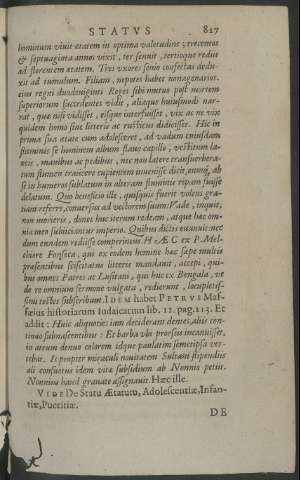 STATVS 827
hominum viuit etatem in optima valetudine, trecentos
& septuaginta annos vixit, ter senuit, tertiaque redijt
ad florentem ætatem. Tres vxores senio confectas dedu-
xit ad tumulum. Filiam, nepotes habet nonagenarios.
eius regni duodeuiginti Reges sibi mutuo post mortem
superiorum succedentes vidit, aliaque huiusmodi nar-
rat, quæ nisi vidisset, eisque interfuisset, vix ac ne vix
quidem homo sine literis ac rusticus didicisset. Hic in
prima sua ætate cum adolesceret, ad vadum cuiusdam
fluminis se hominem album flauo capillo, vestitum la-
neis, manibus ac pedibus, nec non latere
tum flumen traiicere cupientem inuenisse dicit,
se in humeros sublatum in alteram fluminis ripam fuisse
delatum. Quo beneficio ille, quisquis fuerit volens gra-
tiam referre, conuersus ad vectorem suum: Vade, inquit,
non morieris, donec huc iterum redeam, atque hæc om-
nia meo subiiciantur imperio. Quibus dictis euanuit: nec
dum eundem rediisse comperimus. HÆC ex P. Mel-
chiore Fonseca, qui ex eodem homine hæc sæpe multis
præsentibus sciscitatus literis mandauit, accepi, qui-
bus omnes Patres ac Lusitani, qui huc ex Bengala, vt
de re omnium sermone vulgata, redierunt, locupletis-
simi testes subscribunt. IDEM habet PETRVS Maf-
fæius historiarum Indicarum lib. 11. pag. 213. Et
addit: Huic aliquoties iam deciderant dentes, aliis con-
tinuo subnascentibus: Et barba vbi prorsus incanuisset,
in atrum denuo colorem idque paulatim semetipsa ver-
tebat. Is propter miraculi nouitatem Sultani stipendiis
ali consuetus idem vitæ subsidium ab Nonnio petiit.
Nonnius haud grauate assignauit. Hæc ille.
VIDE De Statu Ætatum, Adolescentiæ, Infan-
tiæ, Pueritiæ.
DE